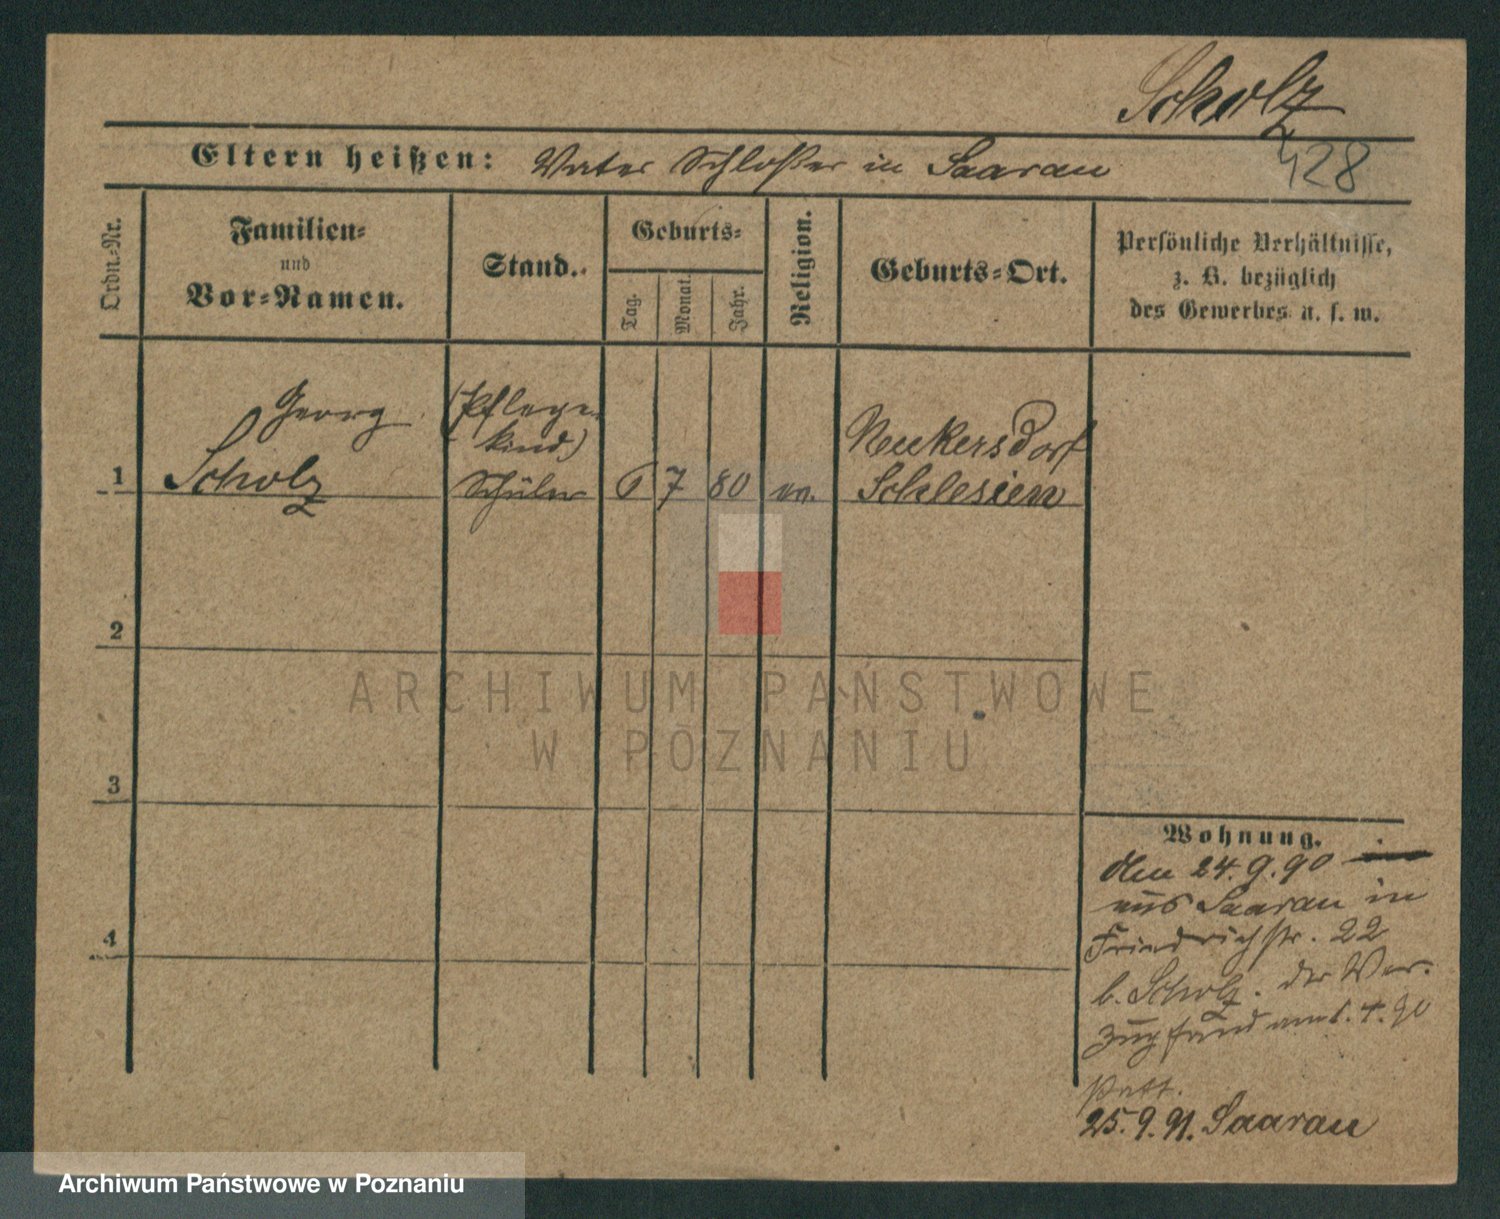 Scholz
Eltern heißen: Vater Schloßer in Saarau
428
Ordn.-Nr.
Familien-
und
Vor-Namen.
Stand.
Geburts-
Tag.
Monat.
Jahr.
Religion.
Geburts-Ort.
Persönliche Verhältnisse,
z. B. bezüglich
des Gewerbes u. s. w.
Georg (Pflege-
kind)
1 Scholz Schüler 6 7 80 ev. Schlesien
2
3
4
Wohnung.
den 24. 9. 90
aus Saarau in
Friedrichstr. 22
b. Scholz. der Ver-
zug fand am 1. 4. 90
statt.
25. 9. 91. Saarau
ARCHIWUM PAŃSTWOWE
W POZNANIU
Archiwum Państwowe w Poznaniu